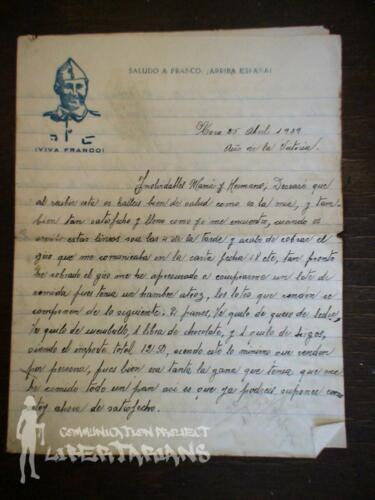 SALUDO A FRANCO: ¡ARRIBA ESPAÑA!
¡VIVA FRANCO!
25 Abril 1939
Año de la Victoria.
Inolvidables Mamá y Hermano, Deseare que
al recibo esta os halleis bien de salud como es la mia, y tam-
bien tan satisfecho y lleno como yo me encuentro, cuando os
escribo estas lineas son las 4 de la tarde y acabo de cobrar el
giro que me comunicabais en la carta fecha 18 cte, tan pronto
he cobrado el giro me he apresurado a comprarme un lote de
comida pues tenia un hambre atroz, los lotes que venden se
componen de lo siguiente. 2 panes, ¼ quilo de queso de bola,
¼ quilo de membrillo, 1 libra de chocolate, y 1 quilo de higos,
siendo el importe total 12 P, siendo esto lo minimo que venden
por persona, pues bien era tanta la gana que tenia que me
he comido todo un pan asi es que ya podreis suponer como
estoy ahora de satisfecho.
COMMUNICATION PROJECT
LIBERTARIANS